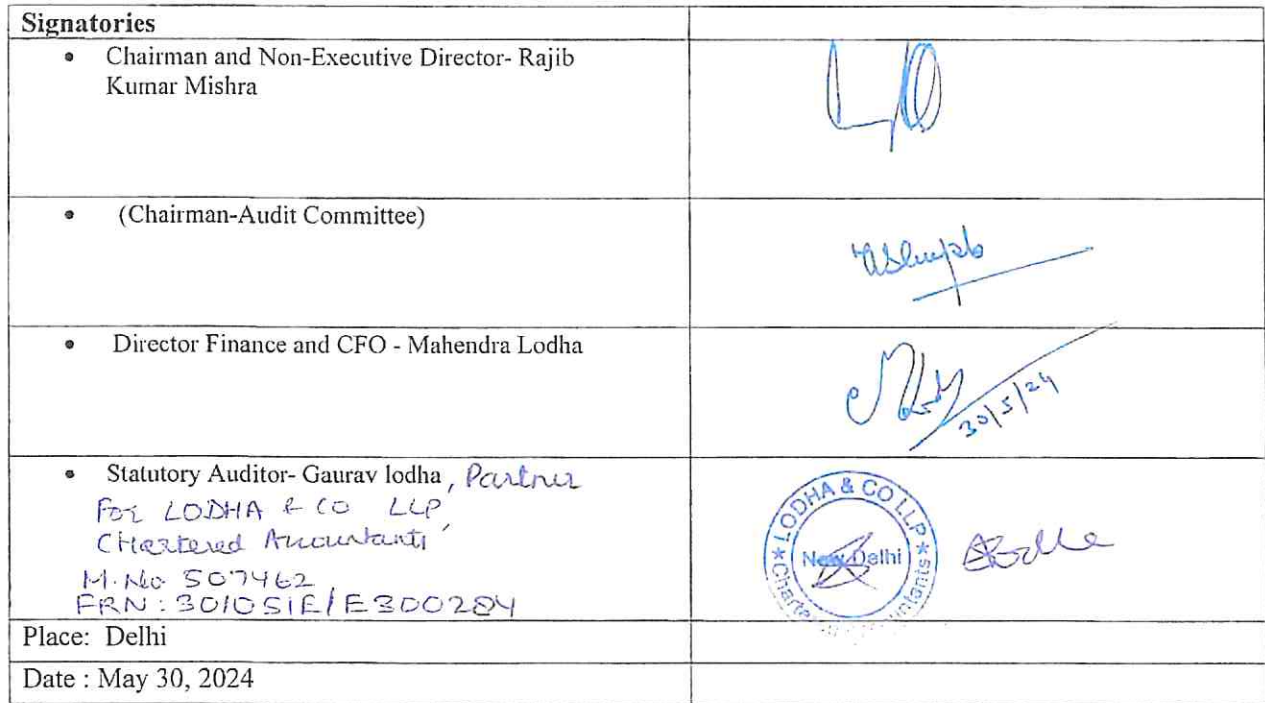 Signatories
• Chairman and Non-Executive Director- Rajib
Kumar Mishra
• (Chairman-Audit Committee)
• Director Finance and CFO - Mahendra Lodha
30/5/24
• Statutory Auditor- Gaurav lodha, Partner
For LODHA & CO LLP
Chartered Accountants
M.No 507462
FRN: 301051E/E300284
LODHA & CO LLP
New Delhi
Place: Delhi
Date : May 30, 2024